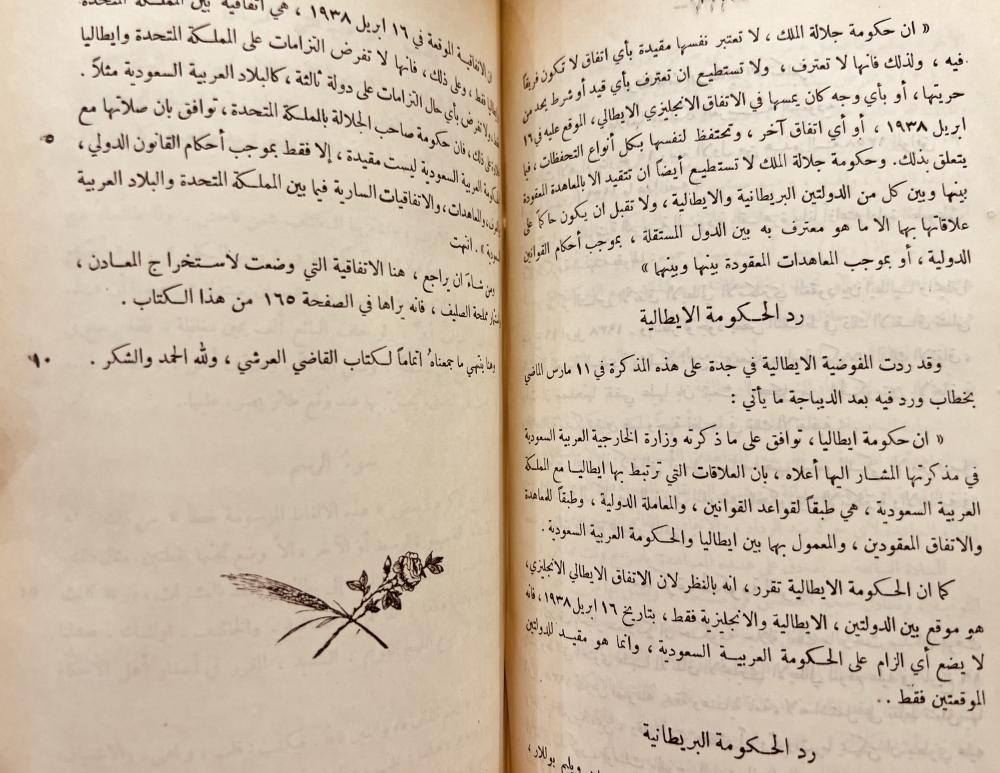 « ان حكومة جلالة الملك ، لا تعتبر نفسها مقيدة بأي اتفاق لا تكون فريقاً
فيه ، ولذلك فانها لا تعترف ، ولا تستطيع ان تعترف بأي قيد أو شرط يحد من
حريتها ، أو بأي وجه كان يمسها في الاتفاق الانجليزي الايطالي، الموقع عليه في ١٦
ابريل ١٩٣٨ ، أو أي اتفاق آخر ، وتحتفظ لنفسها بكل أنواع التحفظات ، فيما
يتعلق بذلك. وحكومة جلالة الملك لا تستطيع أيضاً ان تتقيد الا بالمعاهدة المعقودة
بينها وبين كل من الدولتين البريطانية والايطالية ، ولا تقبل ان يكون حاكماً على
علاقاتها بهما الا ما هو معترف به بين الدول المستقلة ، بموجب أحكام القوانين
الدولية ، أو بموجب المعاهدات المعقودة بينها وبينهما »
رد الحكومة الايطالية
وقد ردت المفوضية الايطالية في جدة على هذه المذكرة في ١١ مارس الماضي
بخطاب ورد فيه بعد الديباجة ما يأتي :
« ان حكومة ايطاليا ، توافق على ما ذكرته وزارة الخارجية العربية السعودية
في مذكرتها المشار اليها أعلاه ، بان العلاقات التي ترتبط بها ايطاليا مع المملكة
العربية السعودية ، هي طبقاً لقواعد القوانين ، والمعاملة الدولية ، وطبقاً للمعاهدة
والاتفاق المعقودين ، والمعمول بهما بين ايطاليا والحكومة العربية السعودية .
كما ان الحكومة الايطالية تقرر ، انه بالنظر لان الاتفاق الايطالي الانجليزي،
هو موقع بين الدولتين ، الايطالية والانجليزية فقط ، بتاريخ ١٦ ابريل ١٩٣٨ ، فانه
لا يضع أي الزام على الحكومة العربية السعودية ، وانما هو مقيد للدولتين
الموقعتين فقط ..
رد الحكومة البريطانية
ويليم بوللار ،
ان الاتفاقية الموقعة في ١٦ ابريل ١٩٣٨ ، هي اتفاقية بين المملكة المتحدة
فقط ، وعلى ذلك ، فانها لا تفرض التزامات على المملكة المتحدة وايطاليا
ولا تفرض بأي حال التزامات على دولة ثالثة ، كالبلاد العربية السعودية مثلاً .
ذلك ، فان حكومة صاحب الجلالة بالمملكة المتحدة ، توافق بان صلاتها مع
٥
الحكومة العربية السعودية ليست مقيدة ، إلا فقط بموجب أحكام القانون الدولي ،
والمعاهدات ، والاتفاقيات السارية فيما بين المملكة المتحدة والبلاد العربية
السعودية » . انتهت
ومن شاء ان يراجع ، هنا الاتفاقية التي وضعت لاستخراج المعادن ،
مملحة الصليف ، فانه يراها في الصفحة ١٦٥ من هذا الكتاب .
وهنا ينتهي ما جمعناه اتماماً لكتاب القاضي العرشي ، ولله الحمد والشكر .
١٠